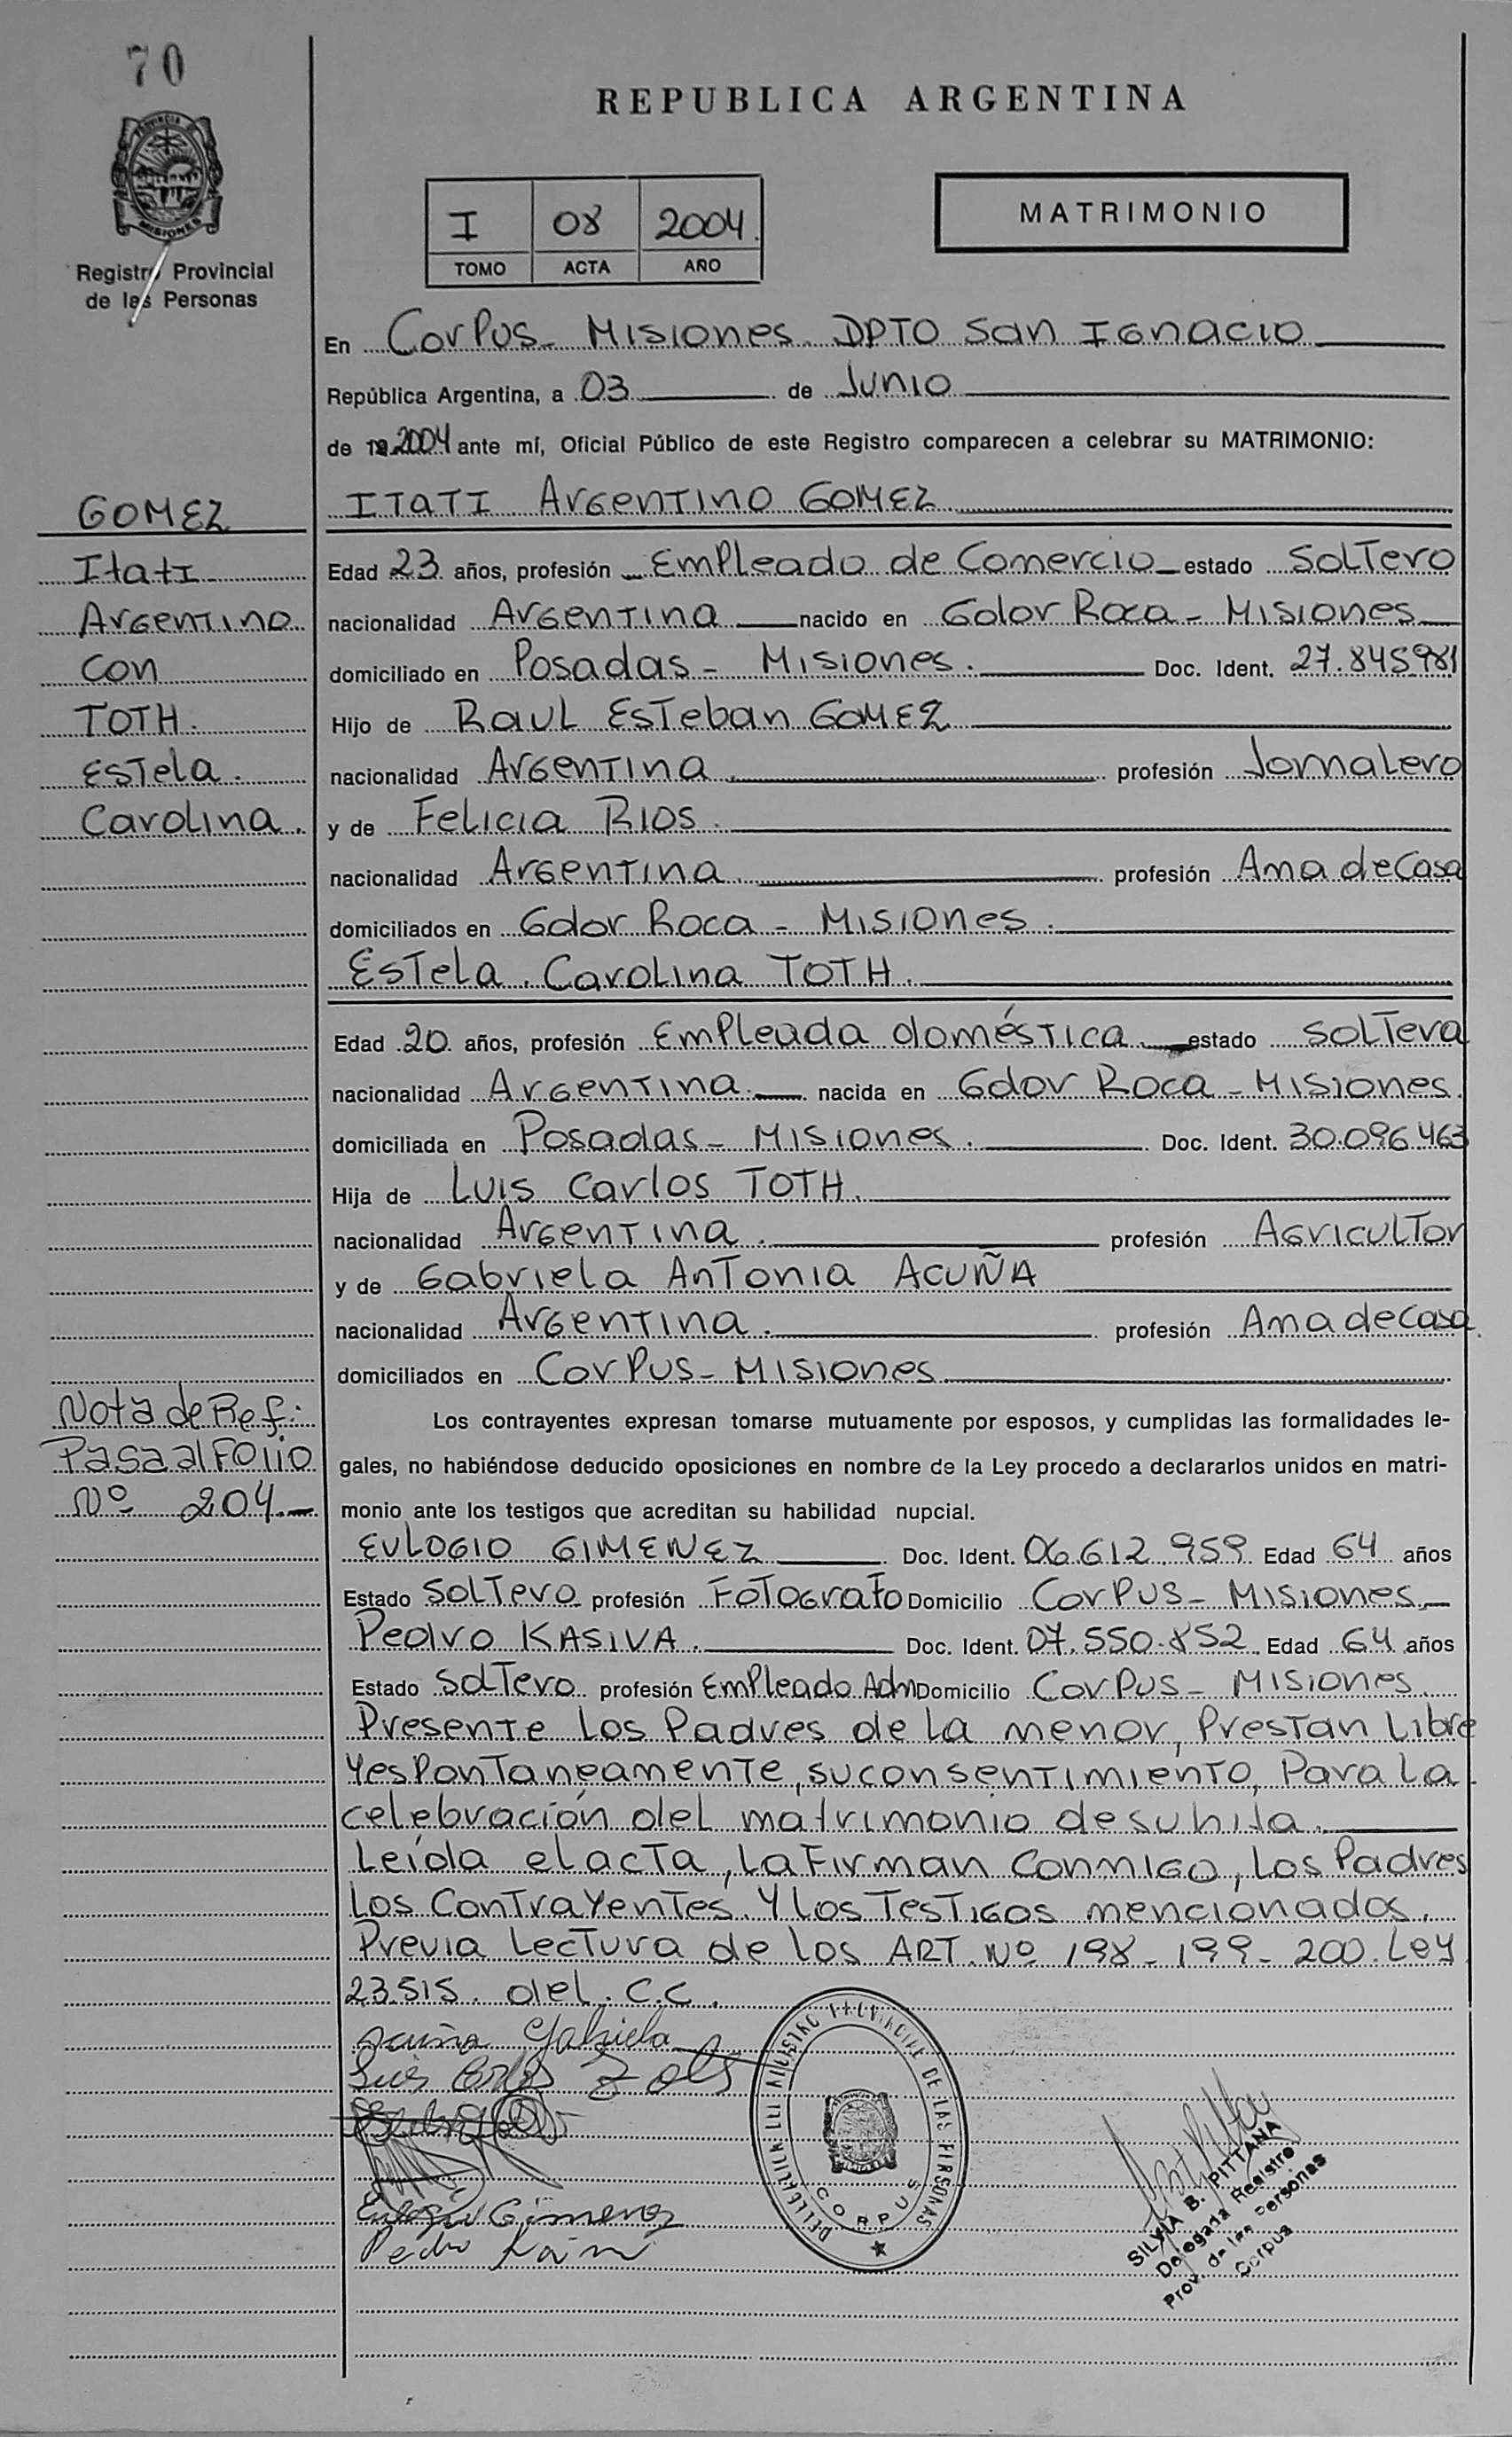 70
REPUBLICA ARGENTINA
PROVINCIA DE
MISIONES
Registro Provincial
de las Personas
I 08 2004.
TOMO ACTA AÑO
MATRIMONIO
En Corpus - Misiones. DPTO San Ignacio
República Argentina, a 03 de Junio
de 19 2004 ante mí, Oficial Público de este Registro comparecen a celebrar su MATRIMONIO:
GOMEZ
Itati
Argentino
con
TOTH.
Estela.
Carolina.
ITATI Argentino GOMEZ.
Edad 23 años, profesión Empleado de Comercio estado Soltero
nacionalidad Argentina nacido en Gdor Roca - Misiones
domiciliado en Posadas - Misiones. Doc. Ident. 27.845981
Hijo de Raul Esteban GOMEZ
nacionalidad Argentina. profesión Jornalero
y de Felicia Rios.
nacionalidad Argentina. profesión Ama de Casa
domiciliados en Gdor Roca - Misiones.
Estela. Carolina TOTH.
Edad 20 años, profesión Empleada doméstica. estado Soltera
nacionalidad Argentina. nacida en Gdor Roca - Misiones.
domiciliada en Posadas - Misiones. Doc. Ident. 30.096.463
Hija de Luis Carlos TOTH.
nacionalidad Argentina. profesión Agricultor
y de Gabriela Antonia ACUÑA
nacionalidad Argentina. profesión Ama de casa.
domiciliados en Corpus - Misiones
Nota de Ref:
Pasa al Folio
Nº 204.-
Los contrayentes expresan tomarse mutuamente por esposos, y cumplidas las formalidades le-
gales, no habiéndose deducido oposiciones en nombre de la Ley procedo a declararlos unidos en matri-
monio ante los testigos que acreditan su habilidad nupcial.
EULOGIO GIMENEZ Doc. Ident. 06.612.959 Edad 64 años
Estado Soltero profesión Fotografo Domicilio Corpus - Misiones
Pedro KASIVA. Doc. Ident. 07.550.852. Edad 64 años
Estado Soltero profesión Empleado Adm Domicilio Corpus - Misiones.
Presente los Padres de la menor, Prestan libre
y espontaneamente, su consentimiento, Para la
celebración del matrimonio de su hija.
Leída el acta, la Firman conmigo, los Padres
los Contrayentes. y los Testigos mencionados.
Previa lectura de los ART. Nº 198 - 199 - 200. Ley
23.515. del. C.C.
Acuña Gabriela
Luis Carlos Toth
Eulogio Gimenez
Pedro
REGISTRO PROVINCIAL DE LAS PERSONAS
CORPUS
SILVIA B. PITTANA
Delegada Registro
Prov. de las Personas
Corpus